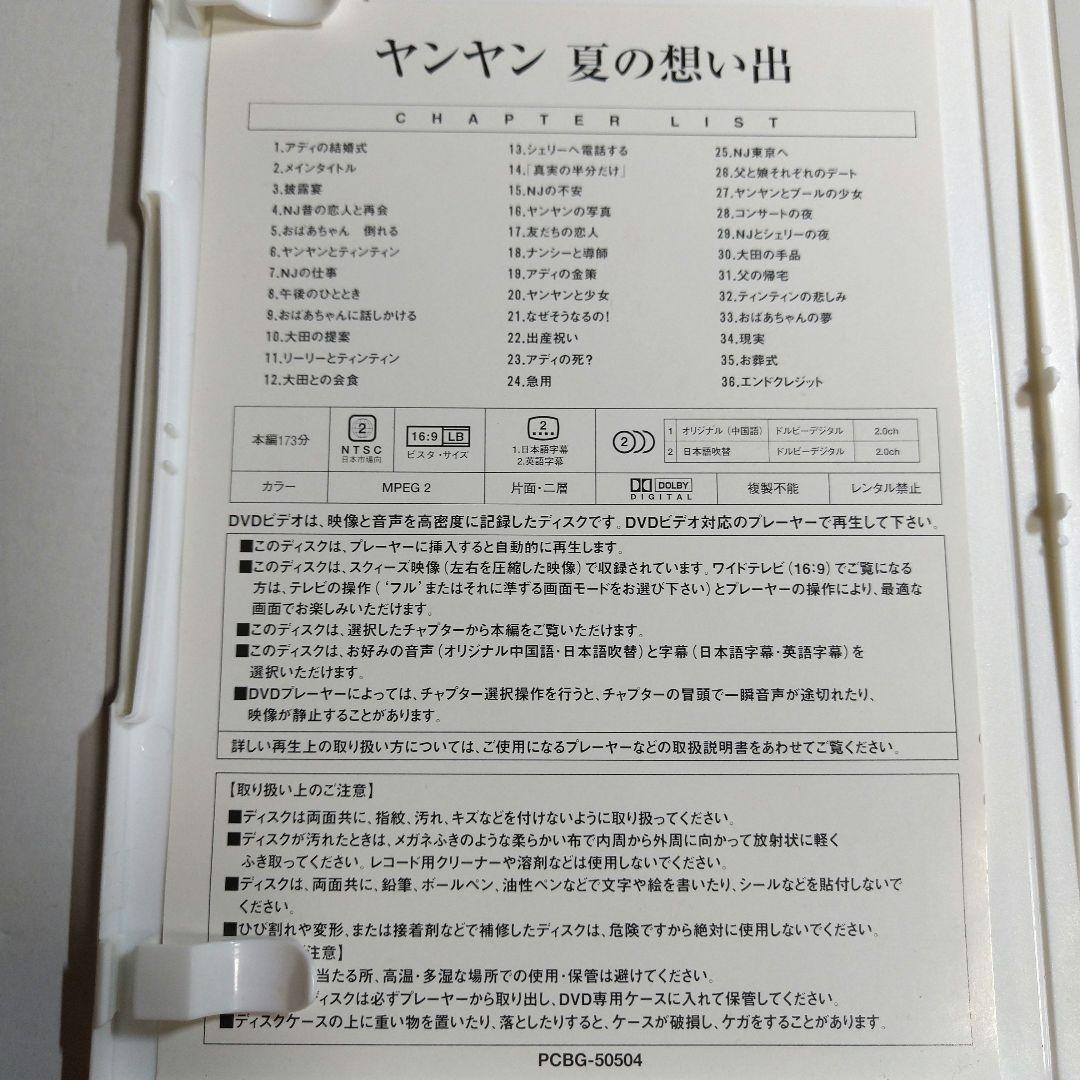 ヤンヤン 夏の想い出
CHAPTER LIST
1.アディの結婚式
2.メインタイトル
3.披露宴
4.NJ昔の恋人と再会
5.おばあちゃん 倒れる
6.ヤンヤンとティンティン
7.NJの仕事
8.午後のひととき
9.おばあちゃんに話しかける
10.大田の提案
11.リーリーとティンティン
12.大田との会食
13.シェリーへ電話する
14.「真実の半分だけ」
15.NJの不安
16.ヤンヤンの写真
17.友だちの恋人
18.ナンシーと導師
19.アディの金策
20.ヤンヤンと少女
21.なぜそうなるの!
22.出産祝い
23.アディの死?
24.急用
25.NJ東京へ
26.父と娘それぞれのデート
27.ヤンヤンとプールの少女
28.コンサートの夜
29.NJとシェリーの夜
30.大田の手品
31.父の帰宅
32.ティンティンの悲しみ
33.おばあちゃんの夢
34.現実
35.お葬式
36.エンドクレジット
本編173分
2
NTSC
日本市場向
16:9 LB
ビスタ・サイズ
2
1.日本語字幕
2.英語字幕
2
1 オリジナル(中国語) ドルビーデジタル 2.0ch
2 日本語吹替 ドルビーデジタル 2.0ch
カラー
MPEG 2
片面・二層
DOLBY
DIGITAL
複製不能
レンタル禁止
DVDビデオは、映像と音声を高密度に記録したディスクです。DVDビデオ対応のプレーヤーで再生して下さい。
■このディスクは、プレーヤーに挿入すると自動的に再生します。
■このディスクは、スクィーズ映像(左右を圧縮した映像)で収録されています。ワイドテレビ(16:9)でご覧になる
方は、テレビの操作(‘フル’またはそれに準ずる画面モードをお選び下さい)とプレーヤーの操作により、最適な
画面でお楽しみいただけます。
■このディスクは、選択したチャプターから本編をご覧いただけます。
■このディスクは、お好みの音声(オリジナル中国語・日本語吹替)と字幕(日本語字幕・英語字幕)を
選択いただけます。
■DVDプレーヤーによっては、チャプター選択操作を行うと、チャプターの冒頭で一瞬音声が途切れたり、
映像が静止することがあります。
詳しい再生上の取り扱い方については、ご使用になるプレーヤーなどの取扱説明書をあわせてご覧ください。
【取り扱い上のご注意】
■ディスクは両面共に、指紋、汚れ、キズなどを付けないように取り扱ってください。
■ディスクが汚れたときは、メガネふきのような柔らかい布で内周から外周に向かって放射状に軽く
ふき取ってください。レコード用クリーナーや溶剤などは使用しないでください。
■ディスクは、両面共に、鉛筆、ボールペン、油性ペンなどで文字や絵を書いたり、シールなどを貼付しないで
ください。
■ひび割れや変形、または接着剤などで補修したディスクは、危険ですから絶対に使用しないでください。
注意】
当たる所、高温・多湿な場所での使用・保管は避けてください。
ィスクは必ずプレーヤーから取り出し、DVD専用ケースに入れて保管してください。
■ディスクケースの上に重い物を置いたり、落としたりすると、ケースが破損し、ケガをすることがあります。
PCBG-50504